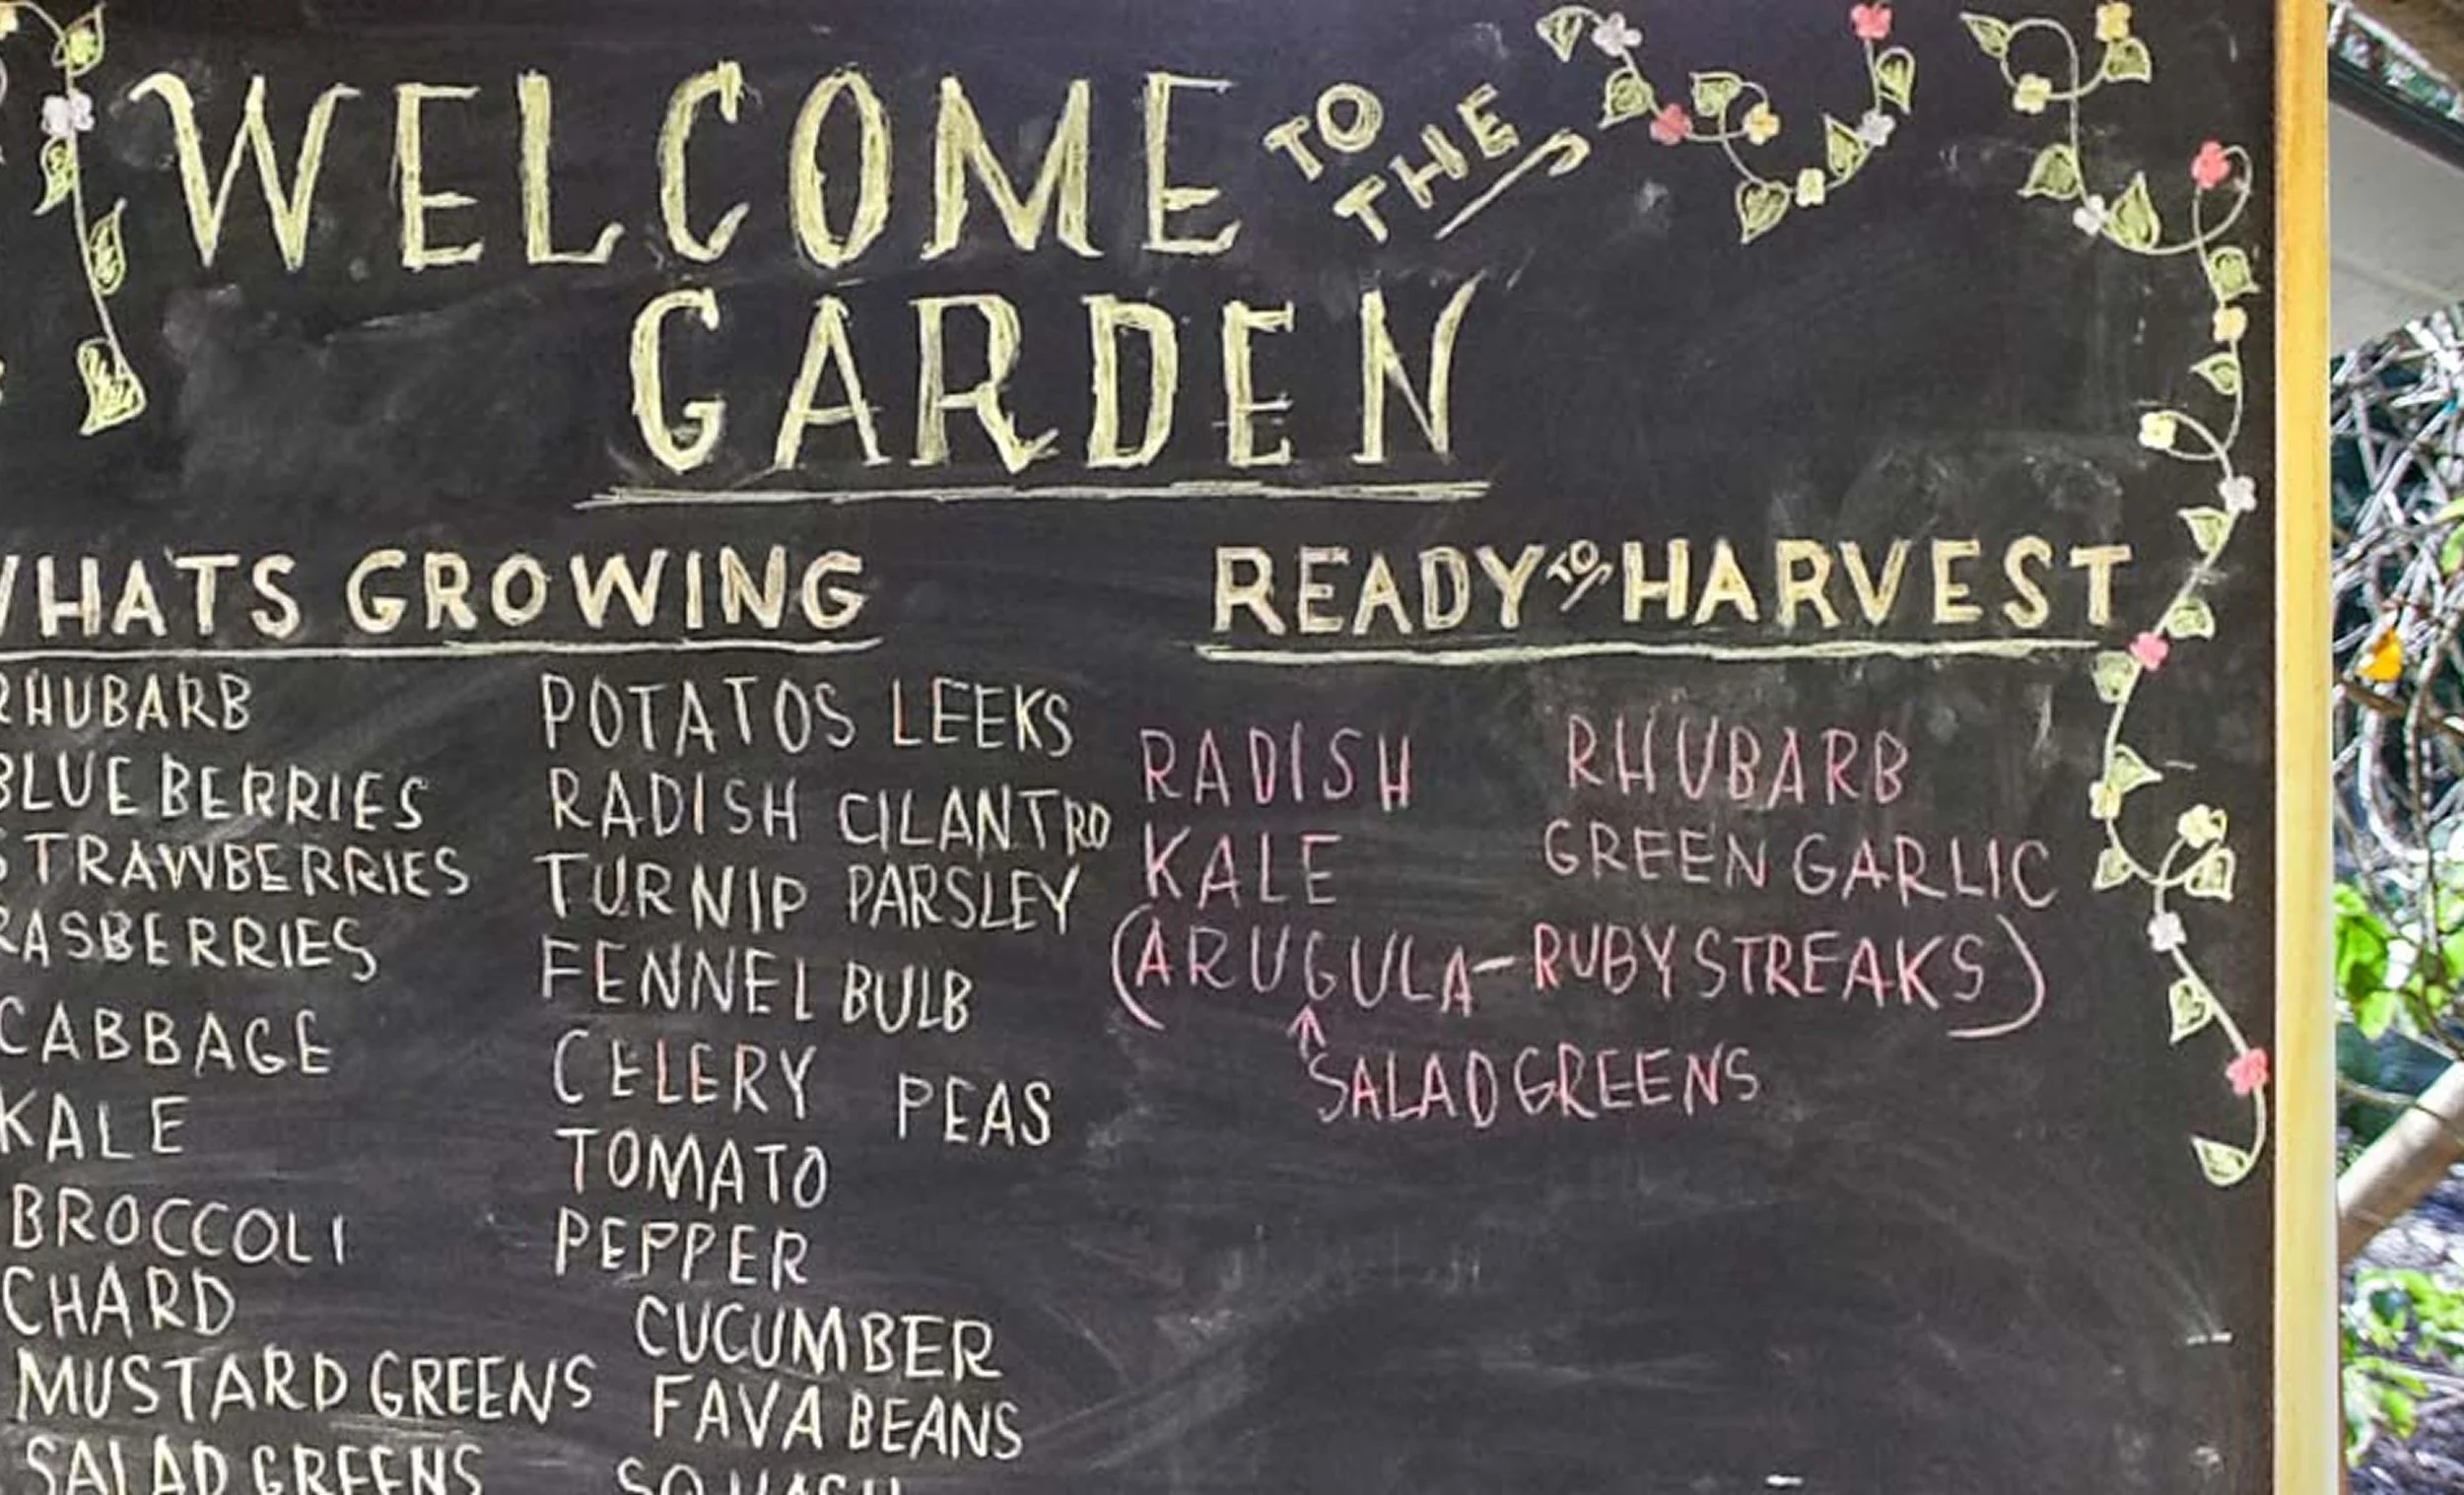 WELCOME TO THE
GARDEN
WHATS GROWING
RHUBARB
BLUEBERRIES
STRAWBERRIES
RASBERRIES
CABBAGE
KALE
BROCCOLI
CHARD
MUSTARD GREENS
SALAD GREENS
POTATOS LEEKS
RADISH CILANTRO
TURNIP PARSLEY
FENNEL BULB
CELERY PEAS
TOMATO
PEPPER
CUCUMBER
FAVA BEANS
SQUASH
READY TO HARVEST
RADISH RHUBARB
KALE GREEN GARLIC
(ARUGULA-RUBY STREAKS)
↑
SALAD GREENS